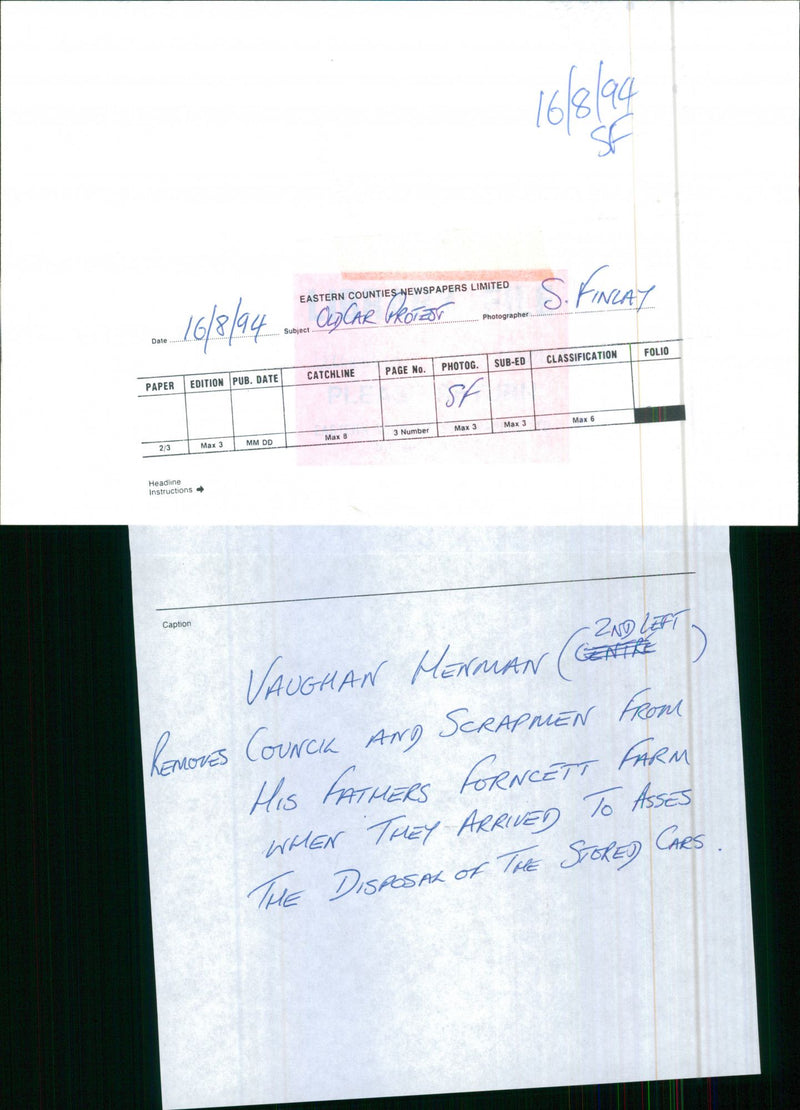 16/8/94
SF
EASTERN COUNTIES NEWSPAPERS LIMITED
Date 16/8/94 Subject OLD CAR PROTEST Photographer S. FINLAY
PAPER EDITION PUB. DATE CATCHLINE PAGE No. PHOTOG. SUB-ED CLASSIFICATION FOLIO
SF
2/3 Max 3 MM DD Max 8 3 Number Max 3 Max 3 Max 6
Headline
Instructions ➔
Caption
VAUGHAN HENMAN (CENTRE 2ND LEFT)
REMOVES COUNCIL AND SCRAPMEN FROM
HIS FATHERS FORNCETT FARM
WHEN THEY ARRIVED TO ASSES
THE DISPOSAL OF THE STORED CARS.